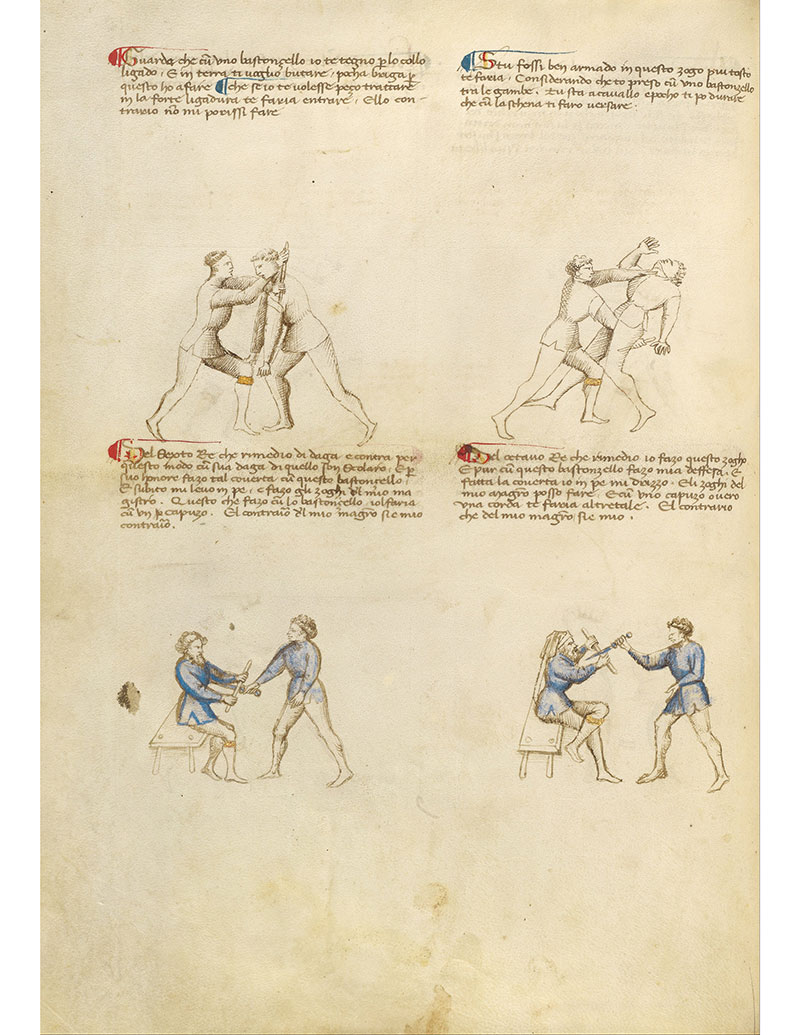 Guarda che cũ uno bastonçello io te tegno ꝑ lo collo
ligado. E in terra ti voglio butare, pocha briga ꝑ
questo ho a fare. Che se io te volesse peço trattare
in la forte ligadura te faria entrare, E lo con-
trario nõ mi porissi fare
Stu fossi ben armado in questo zogo piu tosto
te faria. Considerando che to preso cũ uno bastonzello
tra le gambe. Tu sta a cavallo e pocho ti po durare
che cũ la schena ti faro versare.
Del Sexto Re che rimedio di daga e contra per
questo modo cũ sua daga di quello son Scolaro, E ꝑ
suo honore fazo tal coverta cũ questo bastoncello
E subito mi levo in pe, e fazo gli zoghi dl mio ma
gistro. Questo che fazo cũ lo bastoncello io lfaria
cũ un capuzo. El contraio dl mio magro sie mio
contraio.
Del octavo Re che rimedio io fazo questo zogho
E pur cũ questo bastonzello fazo mia deffesa. E
fatta la coverta io in pe mi drizzo. E li zoghi del
mio magro posso fare. E cũ uno capuzo overo
una corda te faria altretale. El contrario
che del mio magro sie mio.